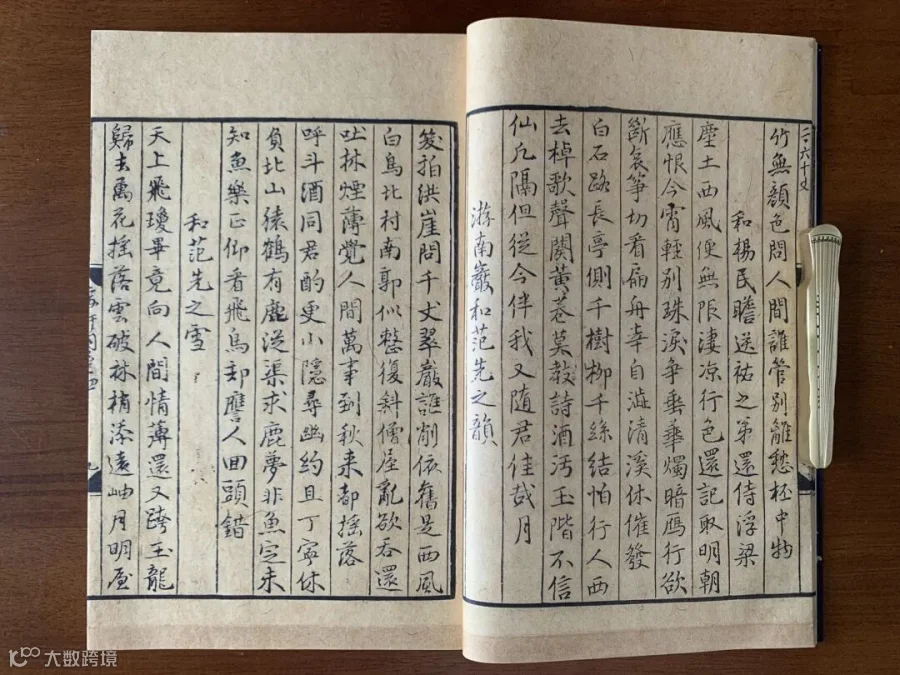 竹無顏色問人間誰管別離愁杯中物
和楊民瞻送祐之弟還侍浮梁
塵土西風便無限淒凉行色還記取明朝
應恨今宵輕別珠淚爭垂華燭暗鴈行欲
斷哀箏切看扁舟幸自澁清溪休催發
白石路長亭側千樹柳千絲結怕行人西
去棹歌聲闋黃卷莫教詩酒汚玉階不信
仙凡隔但從今伴我又随君佳哉月
游南巖和范先之韻
笑拍洪崖問千丈翠巖誰削依舊是西風
白鳥北村南郭似整復斜僧屋亂欲吞還
吐林煙薄覺人間萬事到秋来都摇落
呼斗酒同君酌更小隱尋幽約且丁寧休
負北山猿鶴有鹿從渠求鹿夢非魚定未
知魚樂正仰看飛鳥却譍人回頭錯
和范先之雪
天上飛瓊畢竟向人間情薄還又跨玉龍
歸去萬花摇落雲破林梢添遠岫月明屋
九
大数跨境